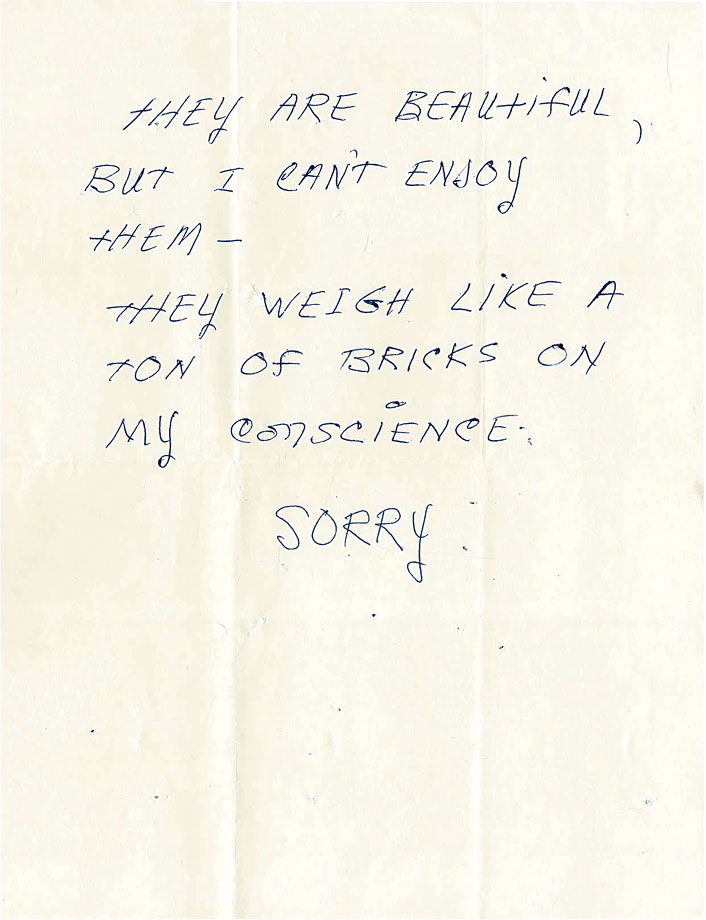 tHEY ARE BEAUtiFUL,
BUT I CAN'T ENJOY
tHEM –
tHEY WEIGH LiKE A
TON OF BRICKS ON
MY CONSCiENCE.
SORRY.